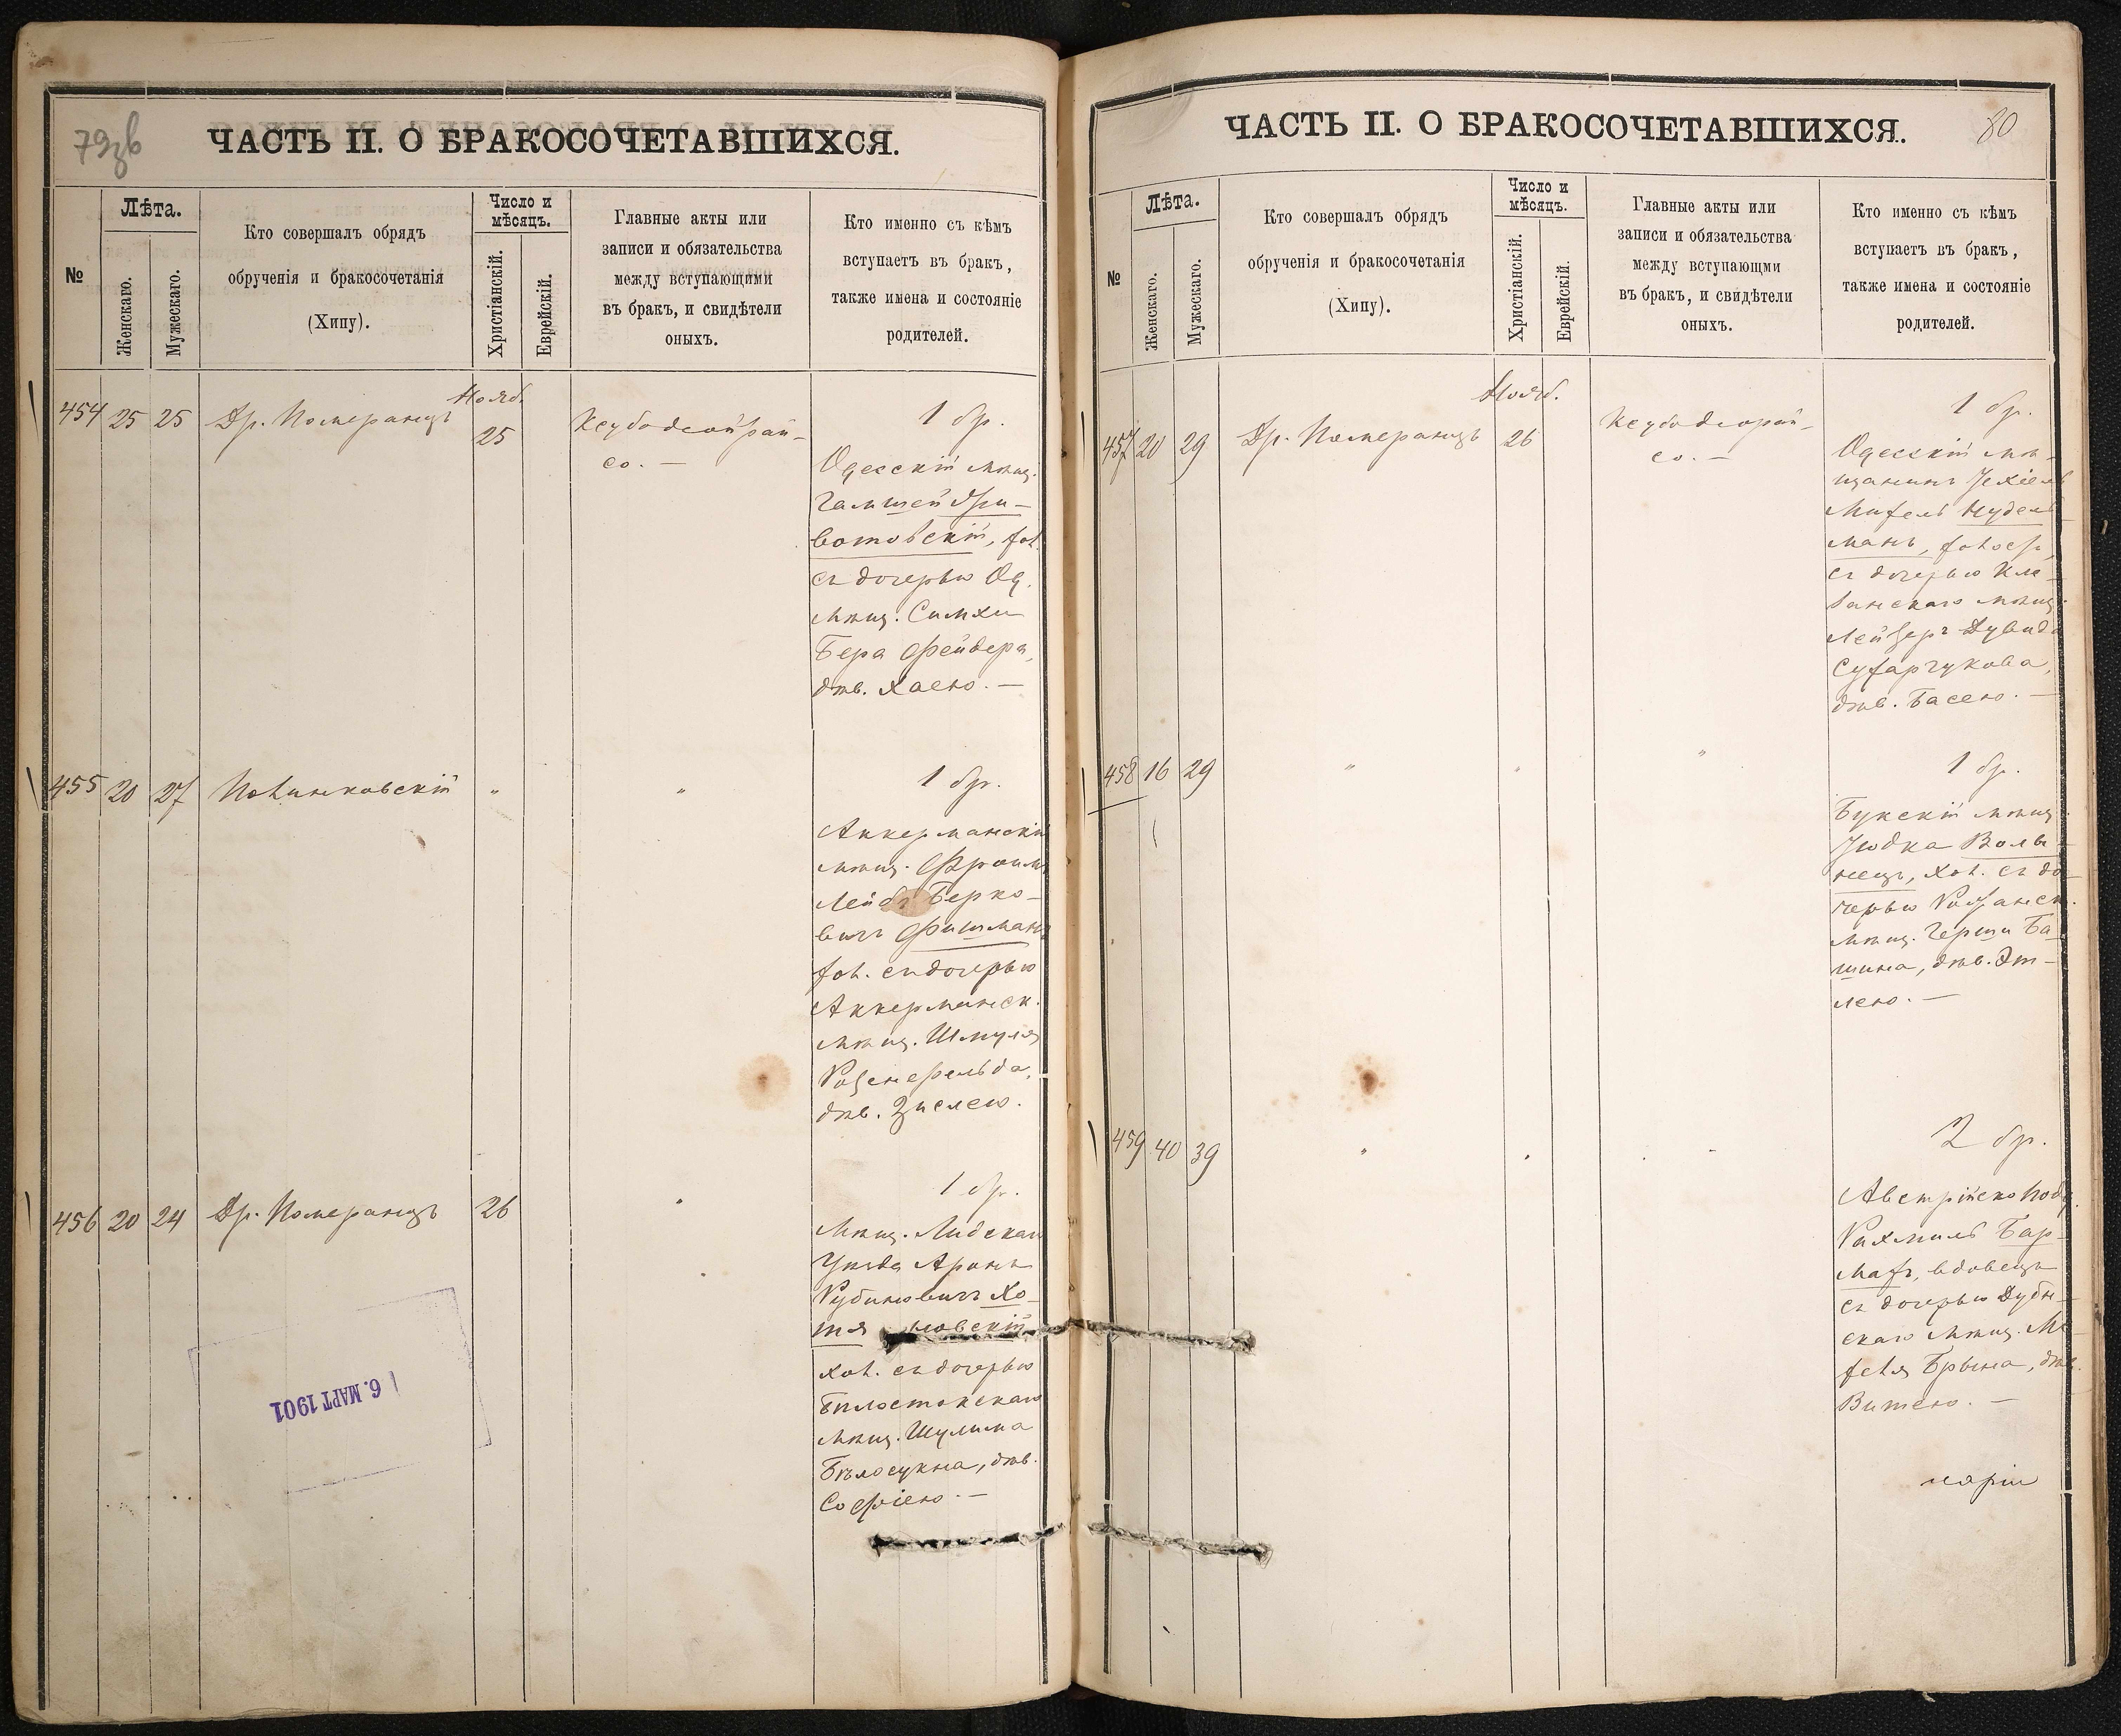 79 зв
ЧАСТЬ II. О БРАКОСОЧЕТАВШИХСЯ.
№
Лѣта.
Женскаго.
Мужескаго.
Кто совершалъ обрядъ
обрученія и бракосочетанія
(Хипу).
Число и
мѣсяцъ.
Христіанскій.
Еврейскій.
Главные акты или
записи и обязательства
между вступающими
въ бракъ, и свидѣтели
оныхъ.
Кто именно съ кѣмъ
вступаетъ въ бракъ,
также имена и состояніе
родителей.
454 25 25 Др. Померанцъ
Нояб.
25
со. —
1 бр.
Одесскій мѣщ.
вотовскій, хол.
съ дочерью Од.
мѣщ. Симхи
Бера Фейдера,
дѣв. Хаею. —
455 20 27 " "
1 бр.
Аккерманскій
мѣщ. Фроимъ
Лейбъ Берко-
вичъ Фишманъ
хол. съ дочерью
Аккерманск.
мѣщ. Шмуля
Розенфельда,
дѣв. Зислею.
456 20 24 Др. Померанцъ 26 "
1 бр.
мѣщ. Лидскаго
уѣзда Аронъ
Рубиновичъ Хо-
тя новскій
хол. съ дочерью
Бѣлостокскаго
мѣщ. Шулима
Бѣлосукна, дѣв.
Софіею. —
6. МАРТ 1901
80
ЧАСТЬ II. О БРАКОСОЧЕТАВШИХСЯ.
№
Лѣта.
Женскаго.
Мужескаго.
Кто совершалъ обрядъ
обрученія и бракосочетанія
(Хипу).
Число и
мѣсяцъ.
Христіанскій.
Еврейскій.
Главные акты или
записи и обязательства
между вступающми
въ бракъ, и свидѣтели
оныхъ.
Кто именно съ кѣмъ
вступаетъ въ бракъ,
также имена и состояніе
родителей.
457 20 29 Др. Померанцъ
Нояб.
26
со. —
1 бр.
Одесскій мѣ-
щанинъ Іехіель
Нудель
манъ, холост,
съ дочерью Кле-
ванскаго мѣщ.
Лейзеръ Дувида
дѣв. Басею. —
458 16 29 " " "
1 бр.
Букскій мѣщ.
Іюдка Волы-
нецъ, хол. съ до-
черью
мѣщ. Герши Ба-
шина, дѣв. Эт-
лею. —
459 40 39 " " "
2 бр.
Австрійско под.
Рахмиль Бар-
махъ, вдовецъ
съ дочерью Дубн-
скаго мѣщ.
Брына, дѣв.
Витею. —